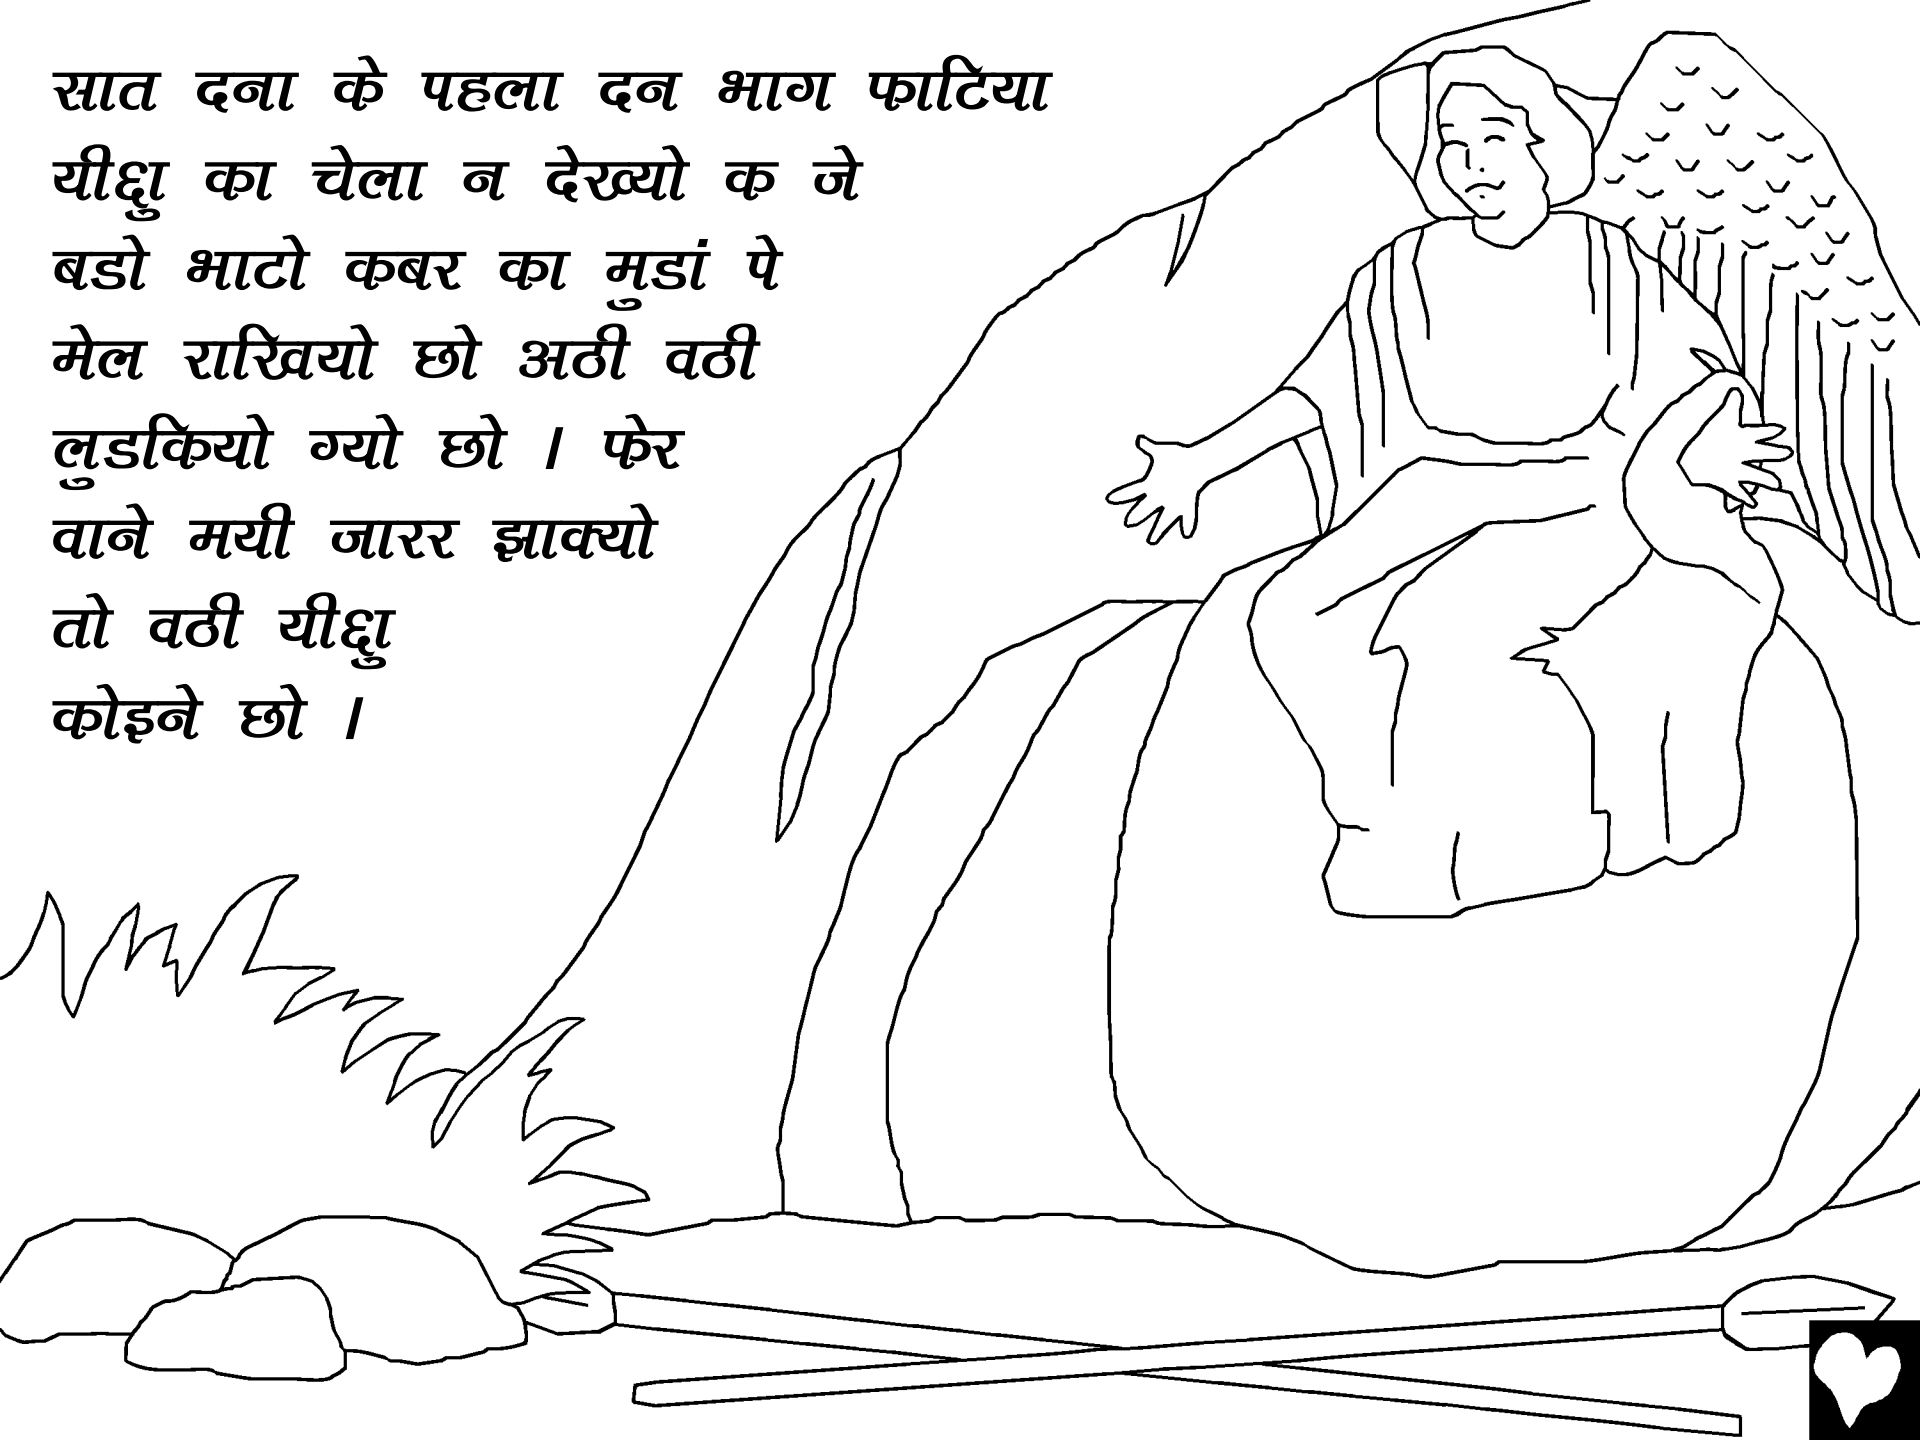 सात दना के पहला दन भाग फाटिया
यीद्गाु का चेला न देख्यो क जे
बडो भाटो कबर का मुडां पे
मेल राखियो छो अठी वठी
लुडकियो ग्यो छो । फेर
वाने मयी जारर झाक्यो
तो वठी यीद्गाु
कोइने छो ।